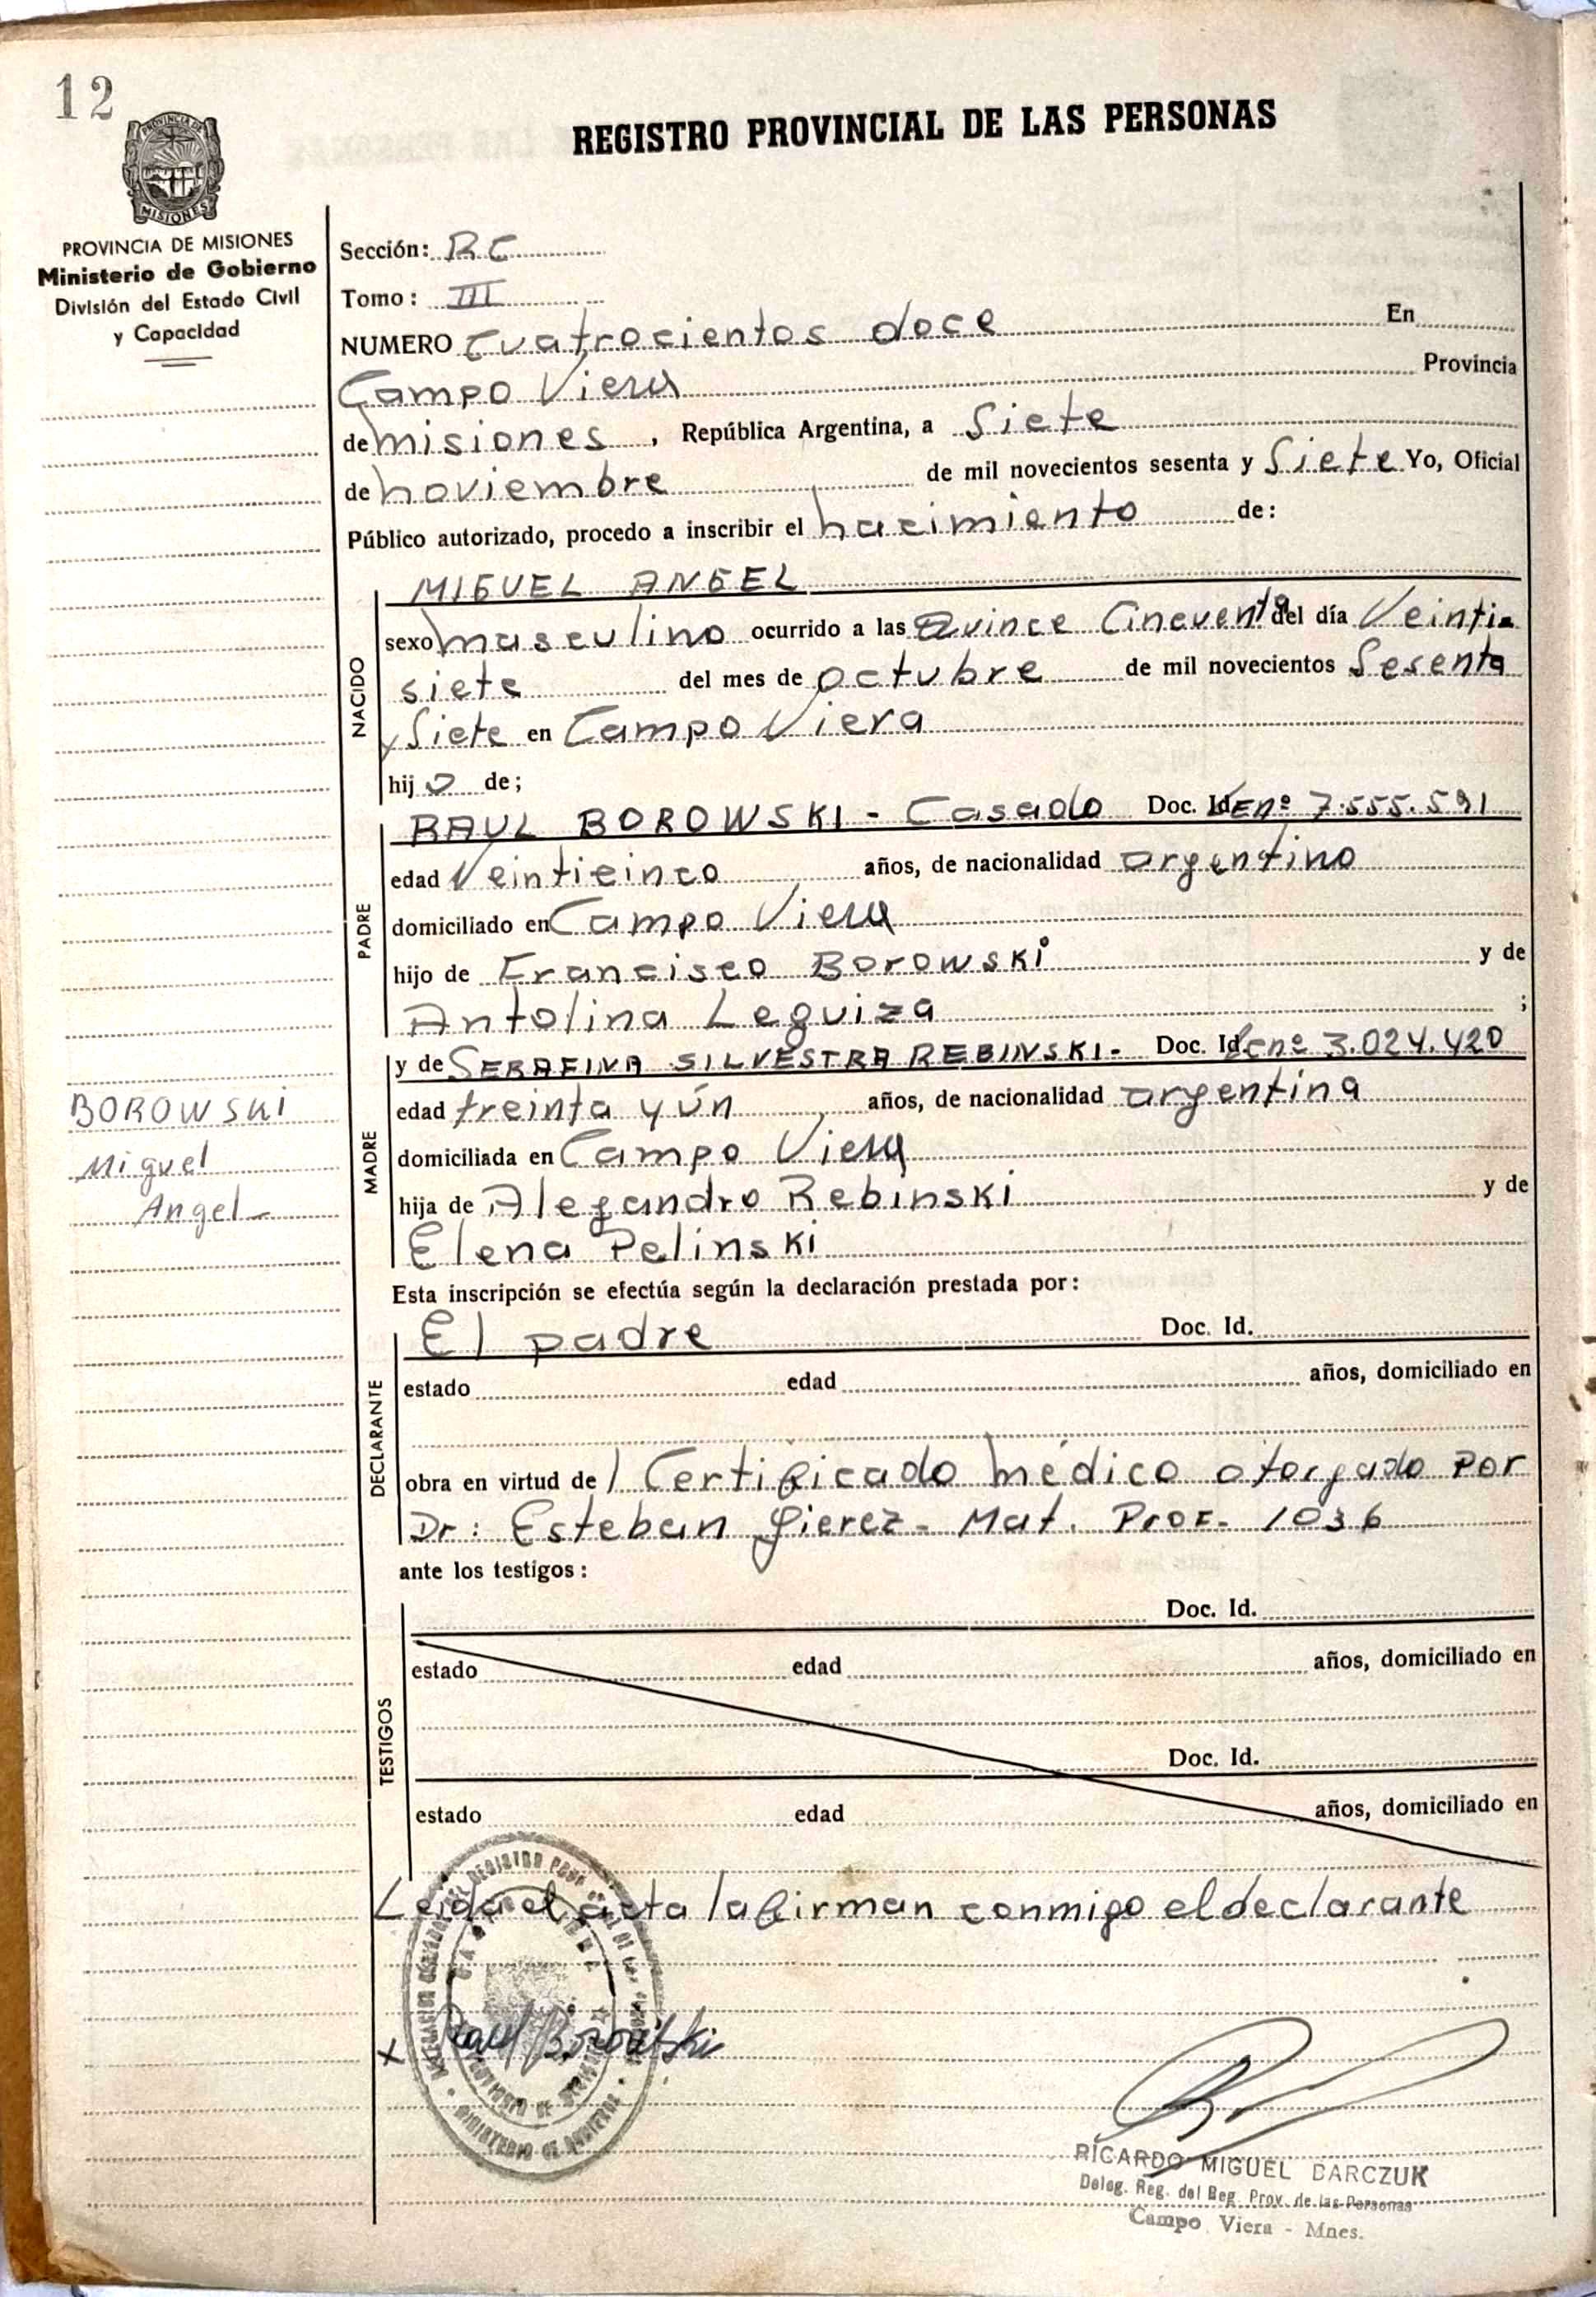 12
REGISTRO PROVINCIAL DE LAS PERSONAS
PROVINCIA DE MISIONES
MISIONES
PROVINCIA DE MISIONES
Ministerio de Gobierno
División del Estado Civil
y Capacidad
Sección: RC
Tomo: III
NUMERO Cuatrocientos doce En
Campo Viera Provincia
de misiones, República Argentina, a Siete
de noviembre de mil novecientos sesenta y Siete Yo, Oficial
Público autorizado, procedo a inscribir el nacimiento de:
NACIDO
MIGUEL ANGEL
sexo masculino ocurrido a las Quince Cincuenta del día Veinti-
siete del mes de octubre de mil novecientos Sesenta
y Siete en Campo Viera
hijo de;
PADRE
RAUL BOROWSKI - Casado Doc. Id. LE nº 7.555.591
edad Veinticinco años, de nacionalidad argentino
domiciliado en Campo Viera
hijo de Francisco Borowski y de
Antolina Leguiza ;
MADRE
y de SERAFINA SILVESTRA REBINSKI- Doc. Id. Lc nº 3.024.420
edad treinta y ún años, de nacionalidad argentina
domiciliada en Campo Viera
hija de Alejandro Rebinski y de
Elena Pelinski
BOROWSKI
Miguel
Angel
Esta inscripción se efectúa según la declaración prestada por:
DECLARANTE
El padre Doc. Id.
estado edad años, domiciliado en
obra en virtud de / Certificado médico otorgado por
Dr: Esteban Gierez - Mat. Prof. 1036
ante los testigos:
TESTIGOS
Doc. Id.
estado edad años, domiciliado en
Doc. Id.
estado edad años, domiciliado en
Leida el acta la firman conmigo el declarante
MINISTERIO DE GOBIERNO
x Raul Borowski
RICARDO MIGUEL DARCZUK
Deleg. Reg. del Reg. Prov. de las Personas
Campo Viera - Mnes.